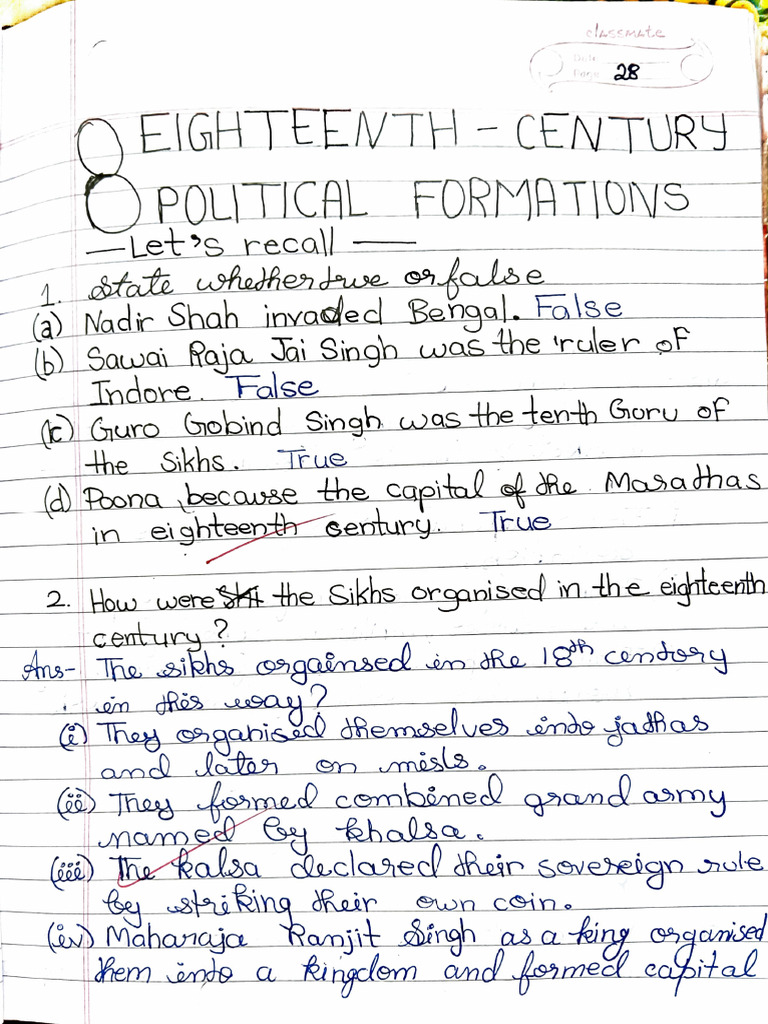 classmate
Date
Page 28
8 EIGHTEENTH - CENTURY
POLITICAL FORMATIONS
— Let's recall —
1. state whether true or false
(a) Nadir Shah invaded Bengal. False
(b) Sawai Raja Jai Singh was the ruler of
Indore. False
(c) Guro Gobind Singh was the tenth Goru of
the Sikhs. True
(d) Poona, because the capital of the Marathas
in eighteenth century. True
2. How were the Sikhs organised in the eighteenth
century?
Ans- The sikhs orgainsed in the 18th centory
in this way?
(i) They organised themselves into jathas
and later on misls.
(ii) They formed combined grand army
named by khalsa.
(iii) The kalsa declared their sovereign role
by striking their own coin.
(iv) Maharaja Ranjit Singh as a king organised
them into a kingdom and formed capital